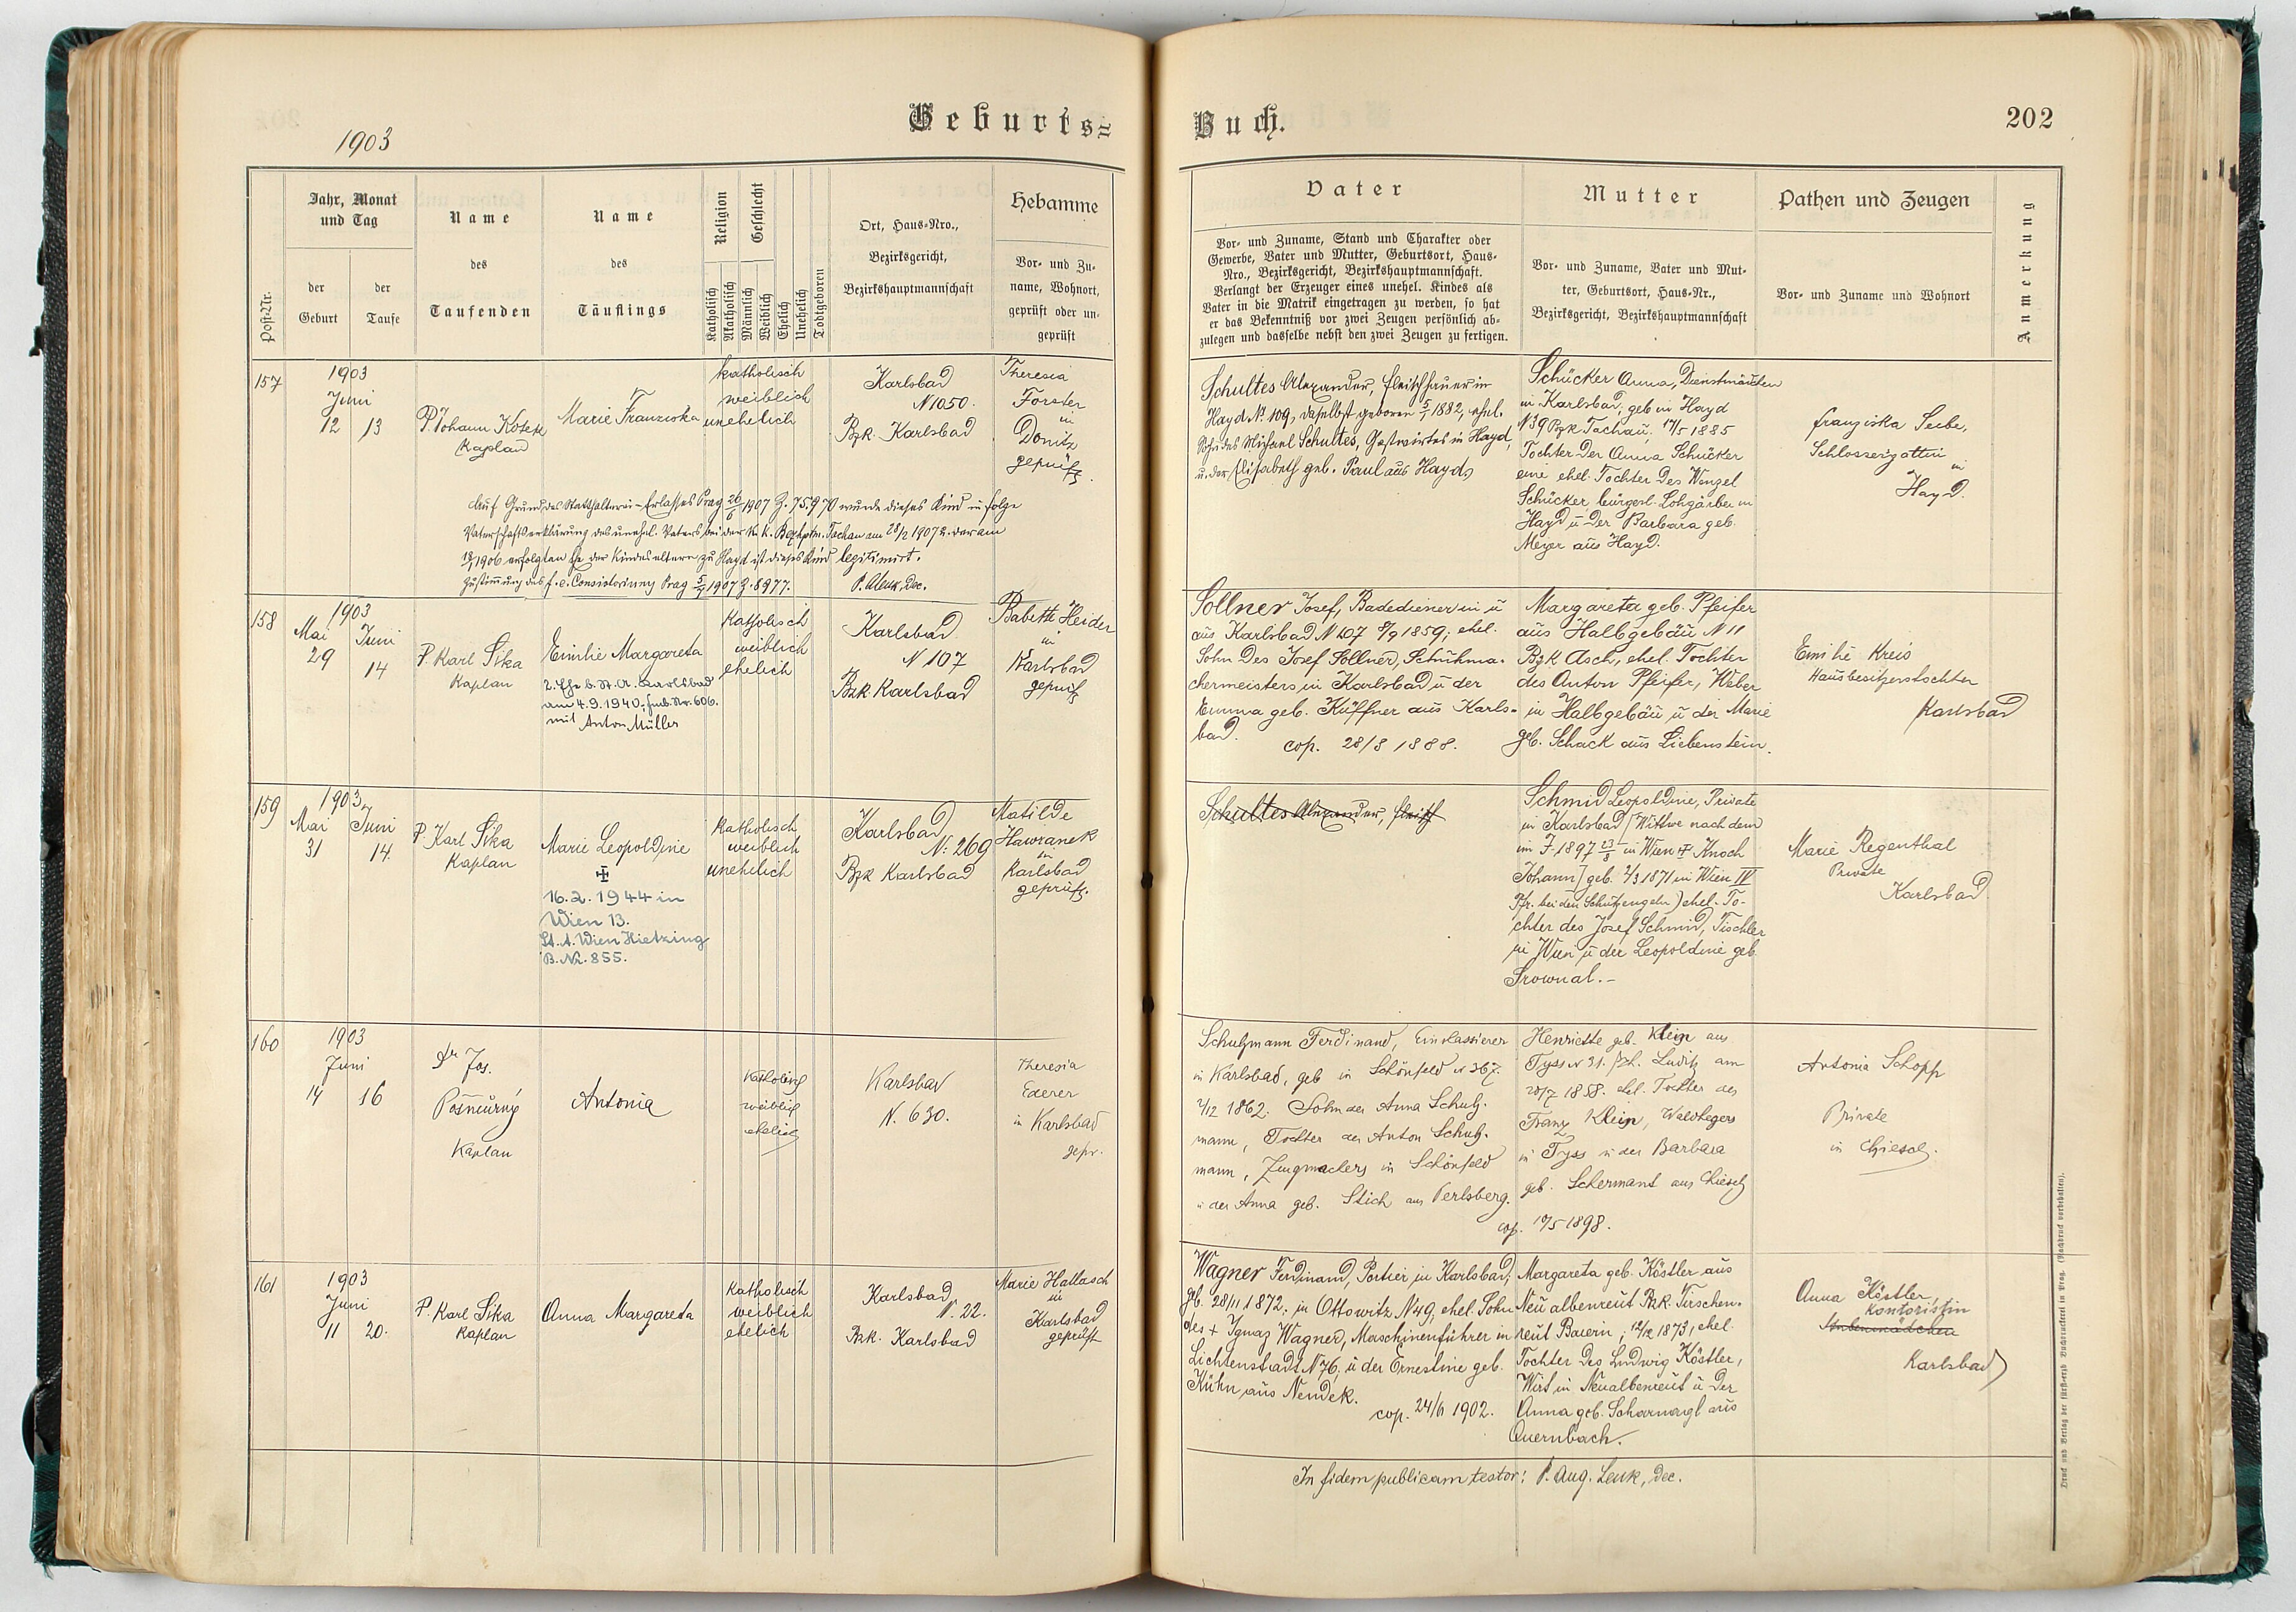 1903
Geburts=
Buch.
202
Post-Nr.
Jahr, Monat
und Tag
der
Geburt
der
Taufe
Name
des
Taufenden
Name
des
Täuflings
Religion
Katholisch
Akatholisch
Geschlecht
Männlich
Weiblich
Ehelich
Unehelich
Todtgeboren
Ort, Haus-Nro.,
Bezirksgericht,
Bezirkshauptmannschaft
Hebamme
Vor- und Zu-
name, Wohnort,
geprüft oder un-
geprüft
Vater
Vor- und Zuname, Stand und Charakter oder
Gewerbe, Vater und Mutter, Geburtsort, Haus-
Nro., Bezirksgericht, Bezirkshauptmannschaft.
Verlangt der Erzeuger eines unehel. Kindes als
Vater in die Matrik eingetragen zu werden, so hat
er das Bekenntniß vor zwei Zeugen persönlich ab-
zulegen und dasselbe nebst den zwei Zeugen zu fertigen.
Mutter
Vor- und Zuname, Vater und Mut-
ter, Geburtsort, Haus-Nr.,
Bezirksgericht, Bezirkshauptmannschaft
Pathen und Zeugen
Vor- und Zuname und Wohnort
Anmerkung
157
1903
Juni
12 13
P. Johann Kotek
Kaplan
Marie Franziska
katholisch
weiblich
unehelich
Karlsbad
N 1050.
Bzk. Karlsbad
Theresia
Forster
in
Donitz
geprüft.
Schultes Alexander, Fleischhauer in
Hayd N. 109, daselbst geboren 5/1 1882, ehel.
Sohn des Michael Schultes, Gastwirtes in Hayd,
u. der Elisabeth geb. Paul aus Hayd
Schücker Anna, Dienstmädchen
in Karlsbad, geb in Hayd
N 39 Bzk Tachau, 17/5 1885
Tochter der Anna Schücker
eine ehel. Tochter des Wenzel
Schücker, bürgerl. Lohgärber in
Hayd u der Barbara geb.
Meyer aus Hayd.
Franziska Seibe,
Schlossergattin
in
Hayd.
Auf Grund des Statthalterei-Erlasses Prag 26/6 1907 Z. 75.970 wurde dieses Kind in folge
Vaterschaftserklärung des unehel. Vaters bei der k. k. Bezhptm. Tachau am 28/2 1907 u. der am
18/1 1906 erfolgten Ehe der Kindeseltern zu Hayd ist dieses Kind legitimirt.
Zustimmung des f. e. Consistoriums Prag 5/7 1907 Z. 8977.
P. A. Lenk, Dec.
158
1903
Mai Juni
29 14
P. Karl Sika
Kaplan
Emilie Margareta
2. Ehe b. St. A. Karlsbad
am 4.9.1940, Fmb. Nr. 606.
mit Anton Müller
Katholisch
weiblich
ehelich
Karlsbad
N 107
Bzk. Karlsbad
Babette Heider
in
Karlsbad
geprüft
Sollner Josef, Badediener in u
aus Karlsbad N 107 8/9 1859; ehel.
Sohn des Josef Sollner, Schuhma-
chermeisters in Karlsbad u der
Emma geb. Küffner aus Karls-
bad.
cop. 28/8 1888.
Margareta geb. Pfeifer
aus Halbgebäu N 11
Bzk Asch, ehel. Tochter
des Anton Pfeifer, Weber
in Halbgebäu u der Marie
geb. Schack aus Liebenstein.
Emilie Kreis
Hausbesitzerstochter
Karlsbad
159
1903
Mai Juni
31 14.
P. Karl Sika
Kaplan
Marie Leopoldine
16.2.1944 in
Wien 13.
St. A. Wien Hietzing
B. Nr. 855.
katholisch
weiblich
unehelich
Karlsbad
N. 269
Bzk Karlsbad
Matilde
Hawranek
in
Karlsbad
geprüft.
Schultes Alexander, Fleisch
Schmid Leopoldine, Private
in Karlsbad (Wittwe nach dem
im J. 1897 23/8 in Wien ‡ Knoch
Johann) geb. 2/3 1871 in Wien IV
Pfr. bei den Schutzengeln) ehel. To-
chter des Josef Schmid, Tischler
in Wien u der Leopoldine geb
Srownal.-
Marie Regenthal
Private
Karlsbad
160
1903
Juni
14 16
Dr Jos.
Pošmurný
Kaplan
Antonia
katholisch
weiblich
ehelich
Karlsbad
N. 630.
Theresia
Ederer
in Karlsbad
gepr.
Schuhmann Ferdinand, Einkassierer
in Karlsbad, geb in Schönfeld N 367.
2/12 1862. Sohn der Anna Schuh-
mann, Tochter des Anton Schuh-
mann, Zeugmachers in Schönfeld
u der Anna geb. Stich aus Perlsberg.
cop. 10/5 1898.
Henriette geb. Klein aus
Tyss N 31. Bzh. Luditz am
20/7 1858. ehel. Tochter des
Franz Klein, Waldhegers
in Tyss u der Barbara
geb. Schermant aus Chiesch
Antonia Schopp
Private
in Chiesch.
161
1903
Juni
11 20.
P. Karl Sika
Kaplan
Anna Margareta
katholisch
weiblich
ehelich
Karlsbad
N. 22.
Bzk. Karlsbad
Marie Hallasch
in
Karlsbad
geprüft
Wagner Ferdinand, Portier in Karlsbad,
gb. 28/11 1872; in Ottowitz N 49, ehel. Sohn
des + Ignaz Wagner, Maschinenführer in
Lichtenstadt N 76, u der Ernestine geb.
Kühn aus Neudek.
cop. 24/6 1902.
Margareta geb. Köstler aus
Neualbenreut Bzk. Tirschen-
reut Baiern, 12/12 1873, ehel.
Tochter des Ludwig Köstler,
Wirt in Neualbenreut u der
Anna geb. Scharnagl aus
Quernbach.
Anna Köstler,
Kontoristin
Stubenmädchen
Karlsbad
In fidem publicam testor: P. Aug. Lenk, Dec.
Druck und Verlag der fürst-erzb. Buchdruckerei in Prag. (Nachdruck vorbehalten).